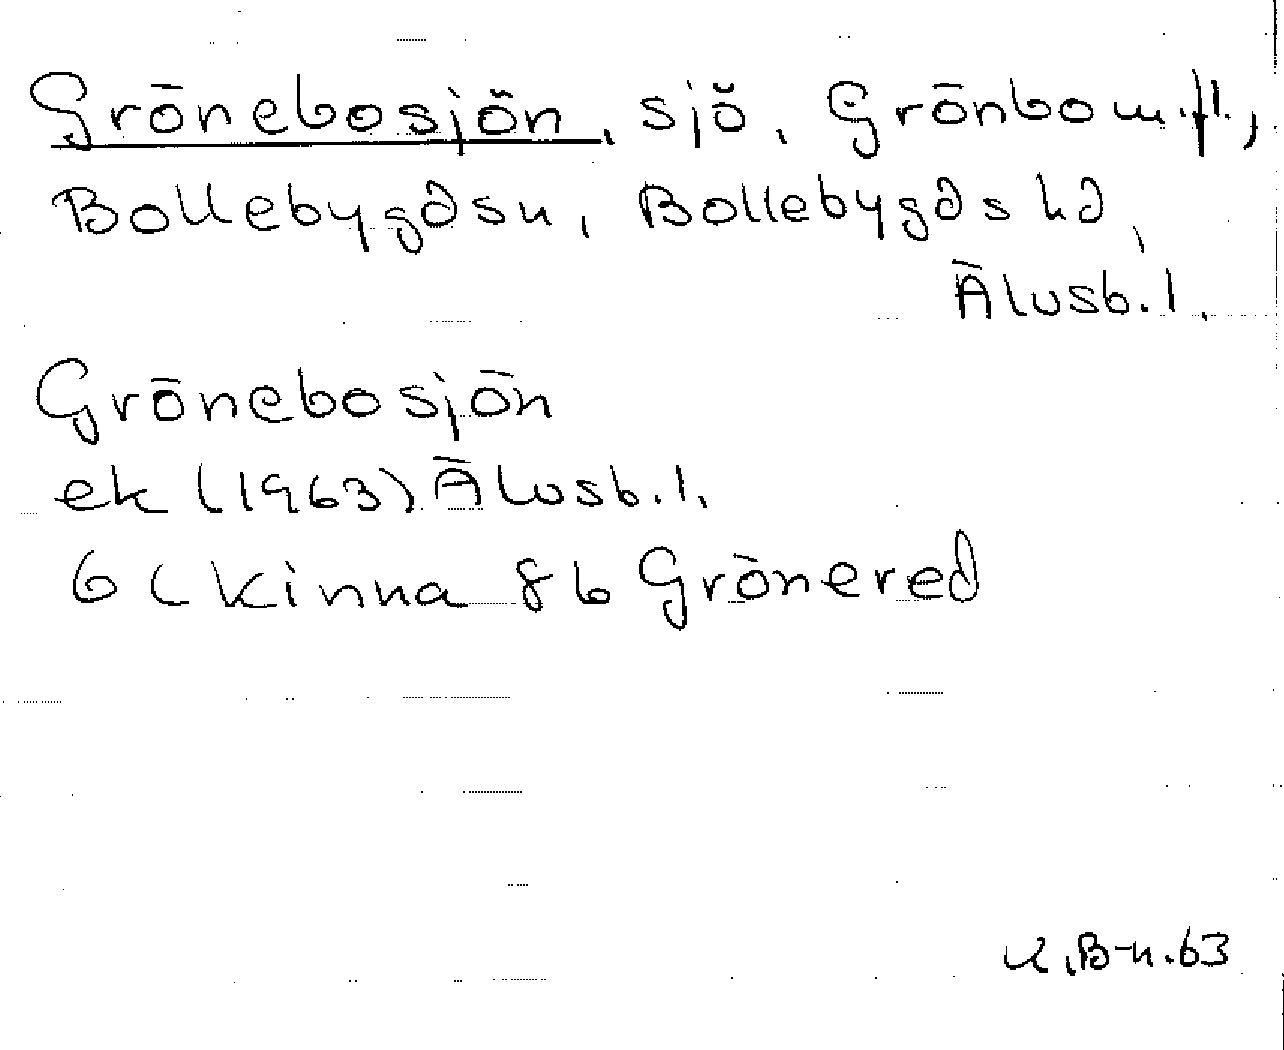 Grönebosjön, sjö, Grönbo m.fl.,
Bollebygds sn, Bollebygds hd,
Älvsb. l.
Grönebosjön
ek (1963) Älvsb. l.
6 C Kinna 8 b Grönered
K.B-n. 63